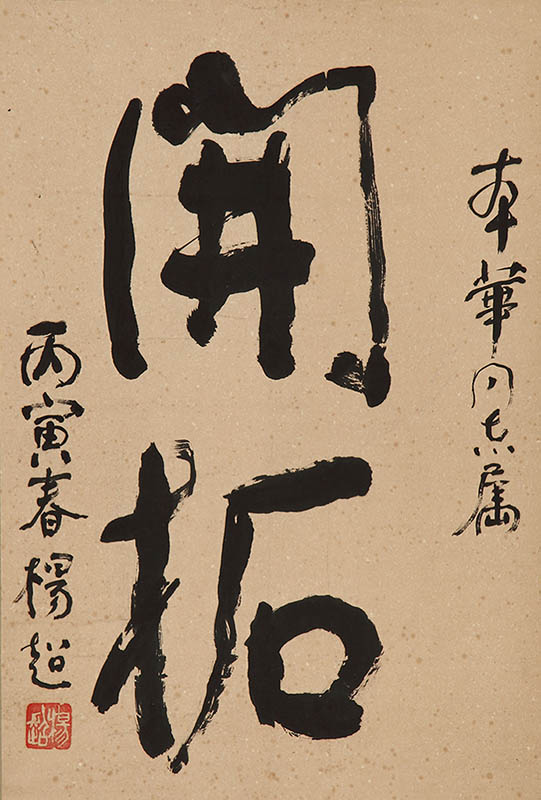 本華同志属
開拓
丙寅春楊超
楊超